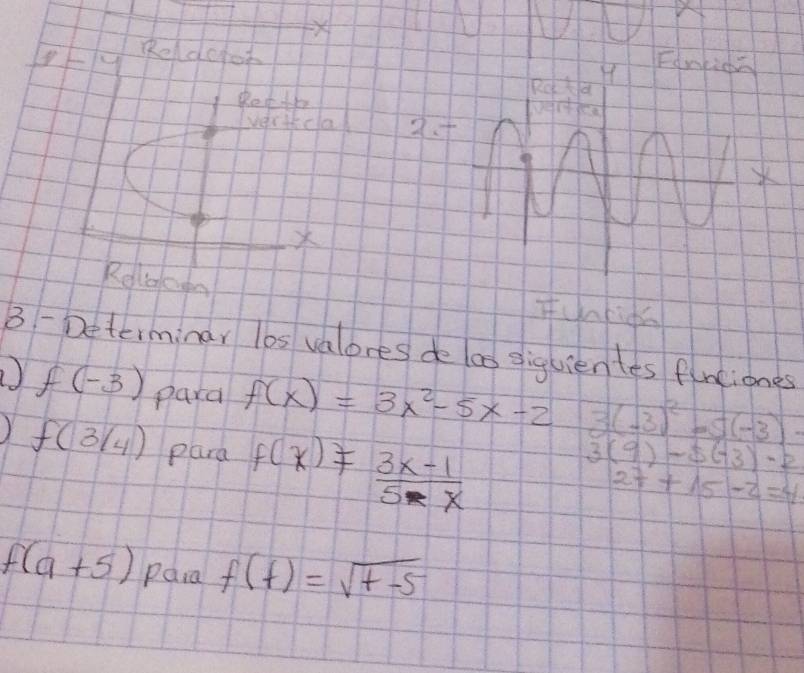 x
x
Relación
Función
y
Recta
vertical
x
Relación
2.-
y
Recta
vertical
x
Función
3.- Determinar los valores de las siguientes funciones
) f(-3) para f(x) = 3x² - 5x - 2
3(-3)² - 5(-3) -
3(9) - 5(-3) - 2
27 + 15 - 2 = 4
) f(3/4) para f(x) = 3x - 1 / 5 - x
f(a + 5) para f(t) = √t - 5